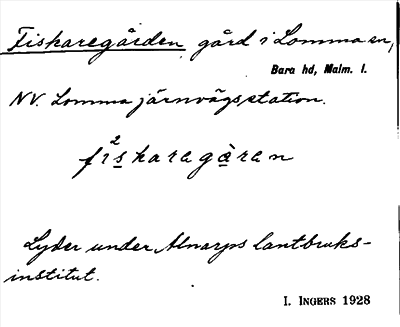 Fiskaregården, gård i Lomma sn,
Bara hd, Malm. l.
NV. Lomma järnvägsstation.
2
fiskaregàran
Lyder under Alnarps lantbruks-
institut.
I. INGERS 1928